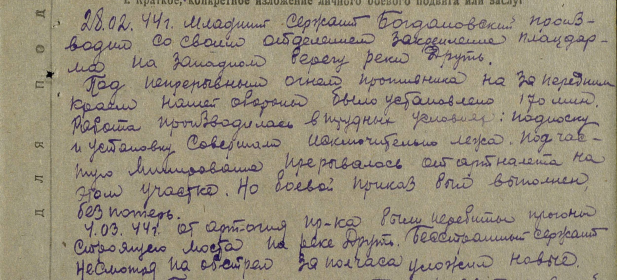 1. Краткое, конкретное изложение личного боевого подвига или заслуг
28.02.44г. Младший сержант Богдановский произ-
водит со своим отделением закрепление плацдар-
ма на западном берегу реки Друть.
Под непрерывным огнем противника на за передним
краем нашей обороны было установлено 170 мин.
Работа производилась в трудных условиях: подноску
и установку совершали исключительно лежа. Подчас-
тую минирование прерывалось от артналета на
этом участке. Но боевой приказ был выполнен
без потерь.
4.03.44г. от артогня пр-ка были перебиты прогоны
строящегося моста на реке Друть. Бесстрашный сержант
несмотря на обстрел за полчаса уложил новые.
ДЛЯ ПОД